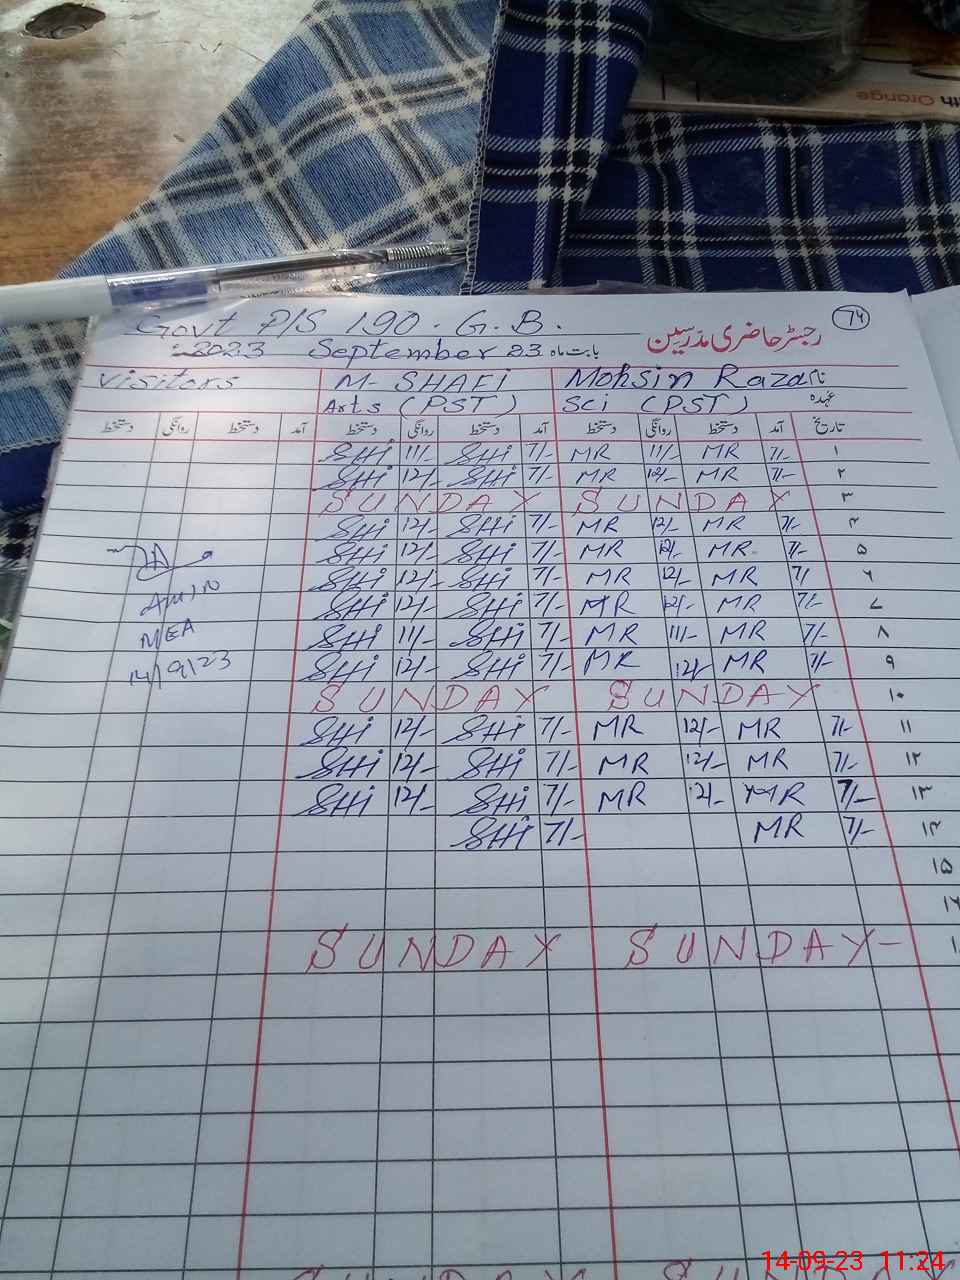 ith Orange
Govt P/S 190. G.B.
74
رجسٹر حاضری مدرسین
2023 September 23 بابت ماہ
Visitors M- SHAFI Mohsin Raza نام
Arts (PST) Sci (PST) عہدہ
تاریخ آمد دستخط روانگی دستخط آمد دستخط روانگی دستخط آمد دستخط روانگی دستخط
SHi 11/- SHi 7/- MR 11/- MR 7/- ۱
SHi 12/- SHi 7/- MR 12/- MR 7/- ۲
SUNDAY SUNDAY ۳
SHi 12/- SHi 7/- MR 12/- MR 7/- ۴
SHi 12/- SHi 7/- MR 12/- MR 7/- ۵
SHi 12/- SHi 7/- MR 12/- MR 7/ ۶
SHi 12/- SHi 7/- MR 12/- MR 7/- ۷
SHi 11/- SHi 7/- MR 11/- MR 7/- ۸
SHi 12/- SHi 7/- MR 12/- MR 7/- ۹
SUNDAY SUNDAY ۱۰
SHi 12/- SHi 7/- MR 12/- MR 7/- ۱۱
SHi 12/- SHi 7/- MR 12/- MR 7/- ۱۲
SHi 12/- SHi 7/- MR 12/- MR 7/- ۱۳
SHi 7/- MR 7/- ۱۴
۱۵
۱۶
SUNDAY SUNDAY-
AMIN
MEA
14/9/23
SUNDAY SUNDAY
14-09-23 11:24